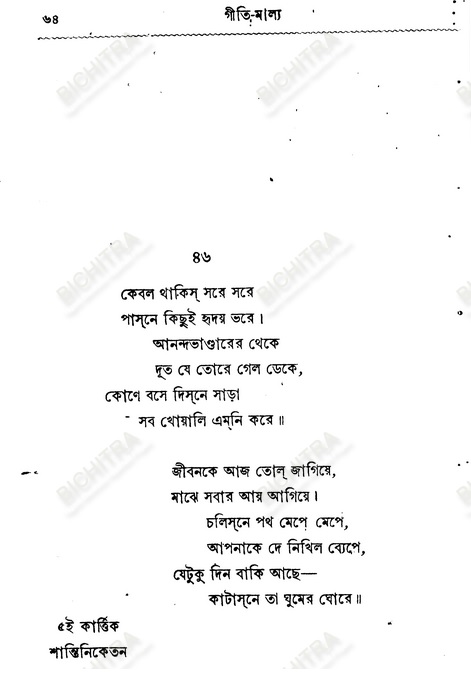 ৬৪
গীতি-মাল্য
৪৬
কেবল থাকিস্ সরে সরে
পাস্‌নে কিছুই হৃদয় ভরে।
আনন্দভাণ্ডারের থেকে
দূত যে তোরে গেল ডেকে,
কোণে বসে দিস্‌নে সাড়া
সব খোয়ালি এম্‌নি করে॥
জীবনকে আজ তোল্ জাগিয়ে,
মাঝে সবার আয় আগিয়ে।
চলিস্‌নে পথ মেপে মেপে,
আপনাকে দে নিখিল ব্যেপে,
যেটুকু দিন বাকি আছে—
কাটাস্‌নে তা ঘুমের ঘোরে॥
৫ই কার্ত্তিক
শান্তিনিকেতন
BICHITRA
BICHITRA
BICHITRA
BICHITRA
BICHITRA
BICHITRA
BICHITRA
BICHITRA
BICHITRA